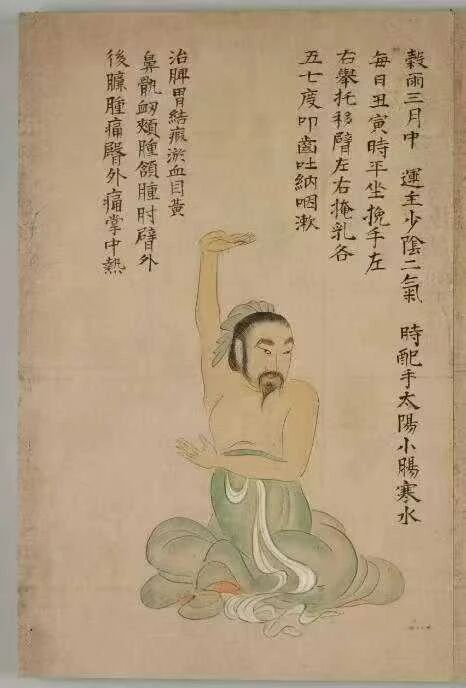 穀雨三月中 運主少陰二氣 時配手太陽小腸寒水
每日丑寅時平坐挽手左
右舉托移臂左右掩乳各
五七度叩齒吐納咽漱
治脾胃結瘕淤血目黃
鼻鼽衂頰腫頷腫肘臂外
後臁腫痛臀外痛掌中熱